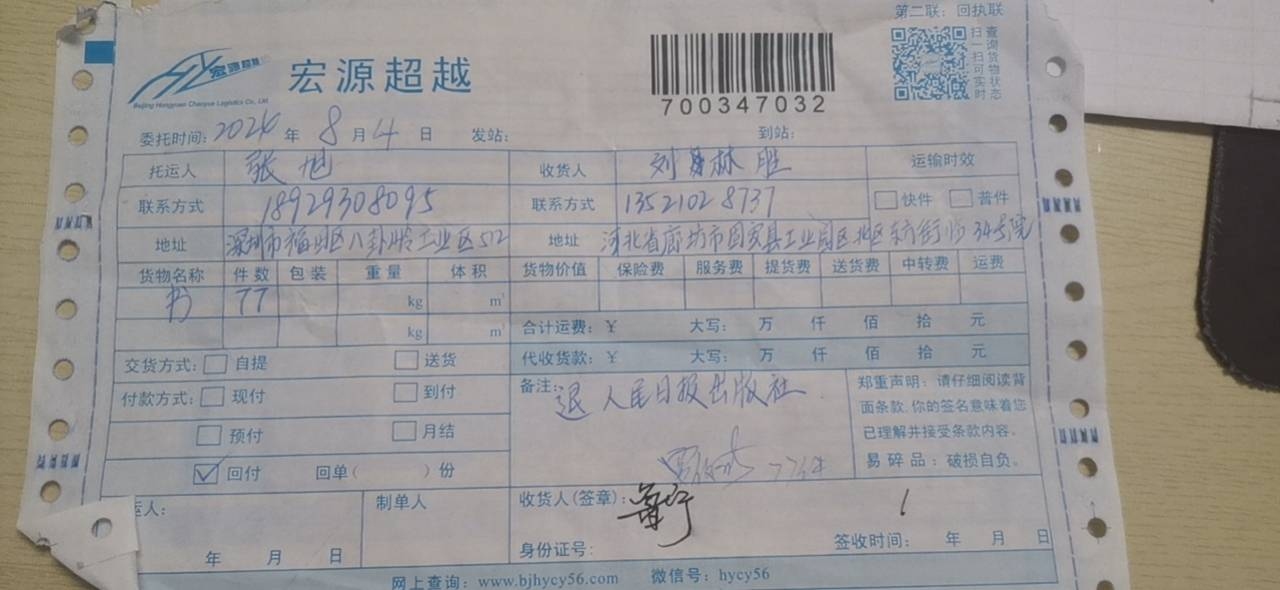 第二联：回执联
宏源超越
Beijing Hongyuan Chaoyue Logistics Co., Ltd.
宏源超越
700347032
扫一扫可实时
查询货物状态
委托时间：2024 年 8 月 4 日 发站： 到站：
托运人 张旭 收货人 刘林胜 运输时效
联系方式 18929308095 联系方式 13521028737 快件 普件
地址 深圳市福田区八卦岭工业区512 地址 河北省廊坊市固安县工业园区北区东方街临34号院
货物名称 件数 包装 重量 体积 货物价值 保险费 服务费 提货费 送货费 中转费 运费
书 77 kg m³
kg m³ 合计运费：¥ 大写： 万 仟 佰 拾 元
交货方式： 自提 送货 代收货款：¥ 大写： 万 仟 佰 拾 元
付款方式： 现付 到付 备注：退 人民日报出版社
预付 月结
回付 回单( )份
郑重声明：请仔细阅读背
面条款，你的签名意味着您
已理解并接受条款内容。
易碎品：破损自负。
77件
运人： 制单人 收货人(签章)：
年 月 日 身份证号： 签收时间： 年 月 日
网上查询：www.bjhycy56.com 微信号：hycy56